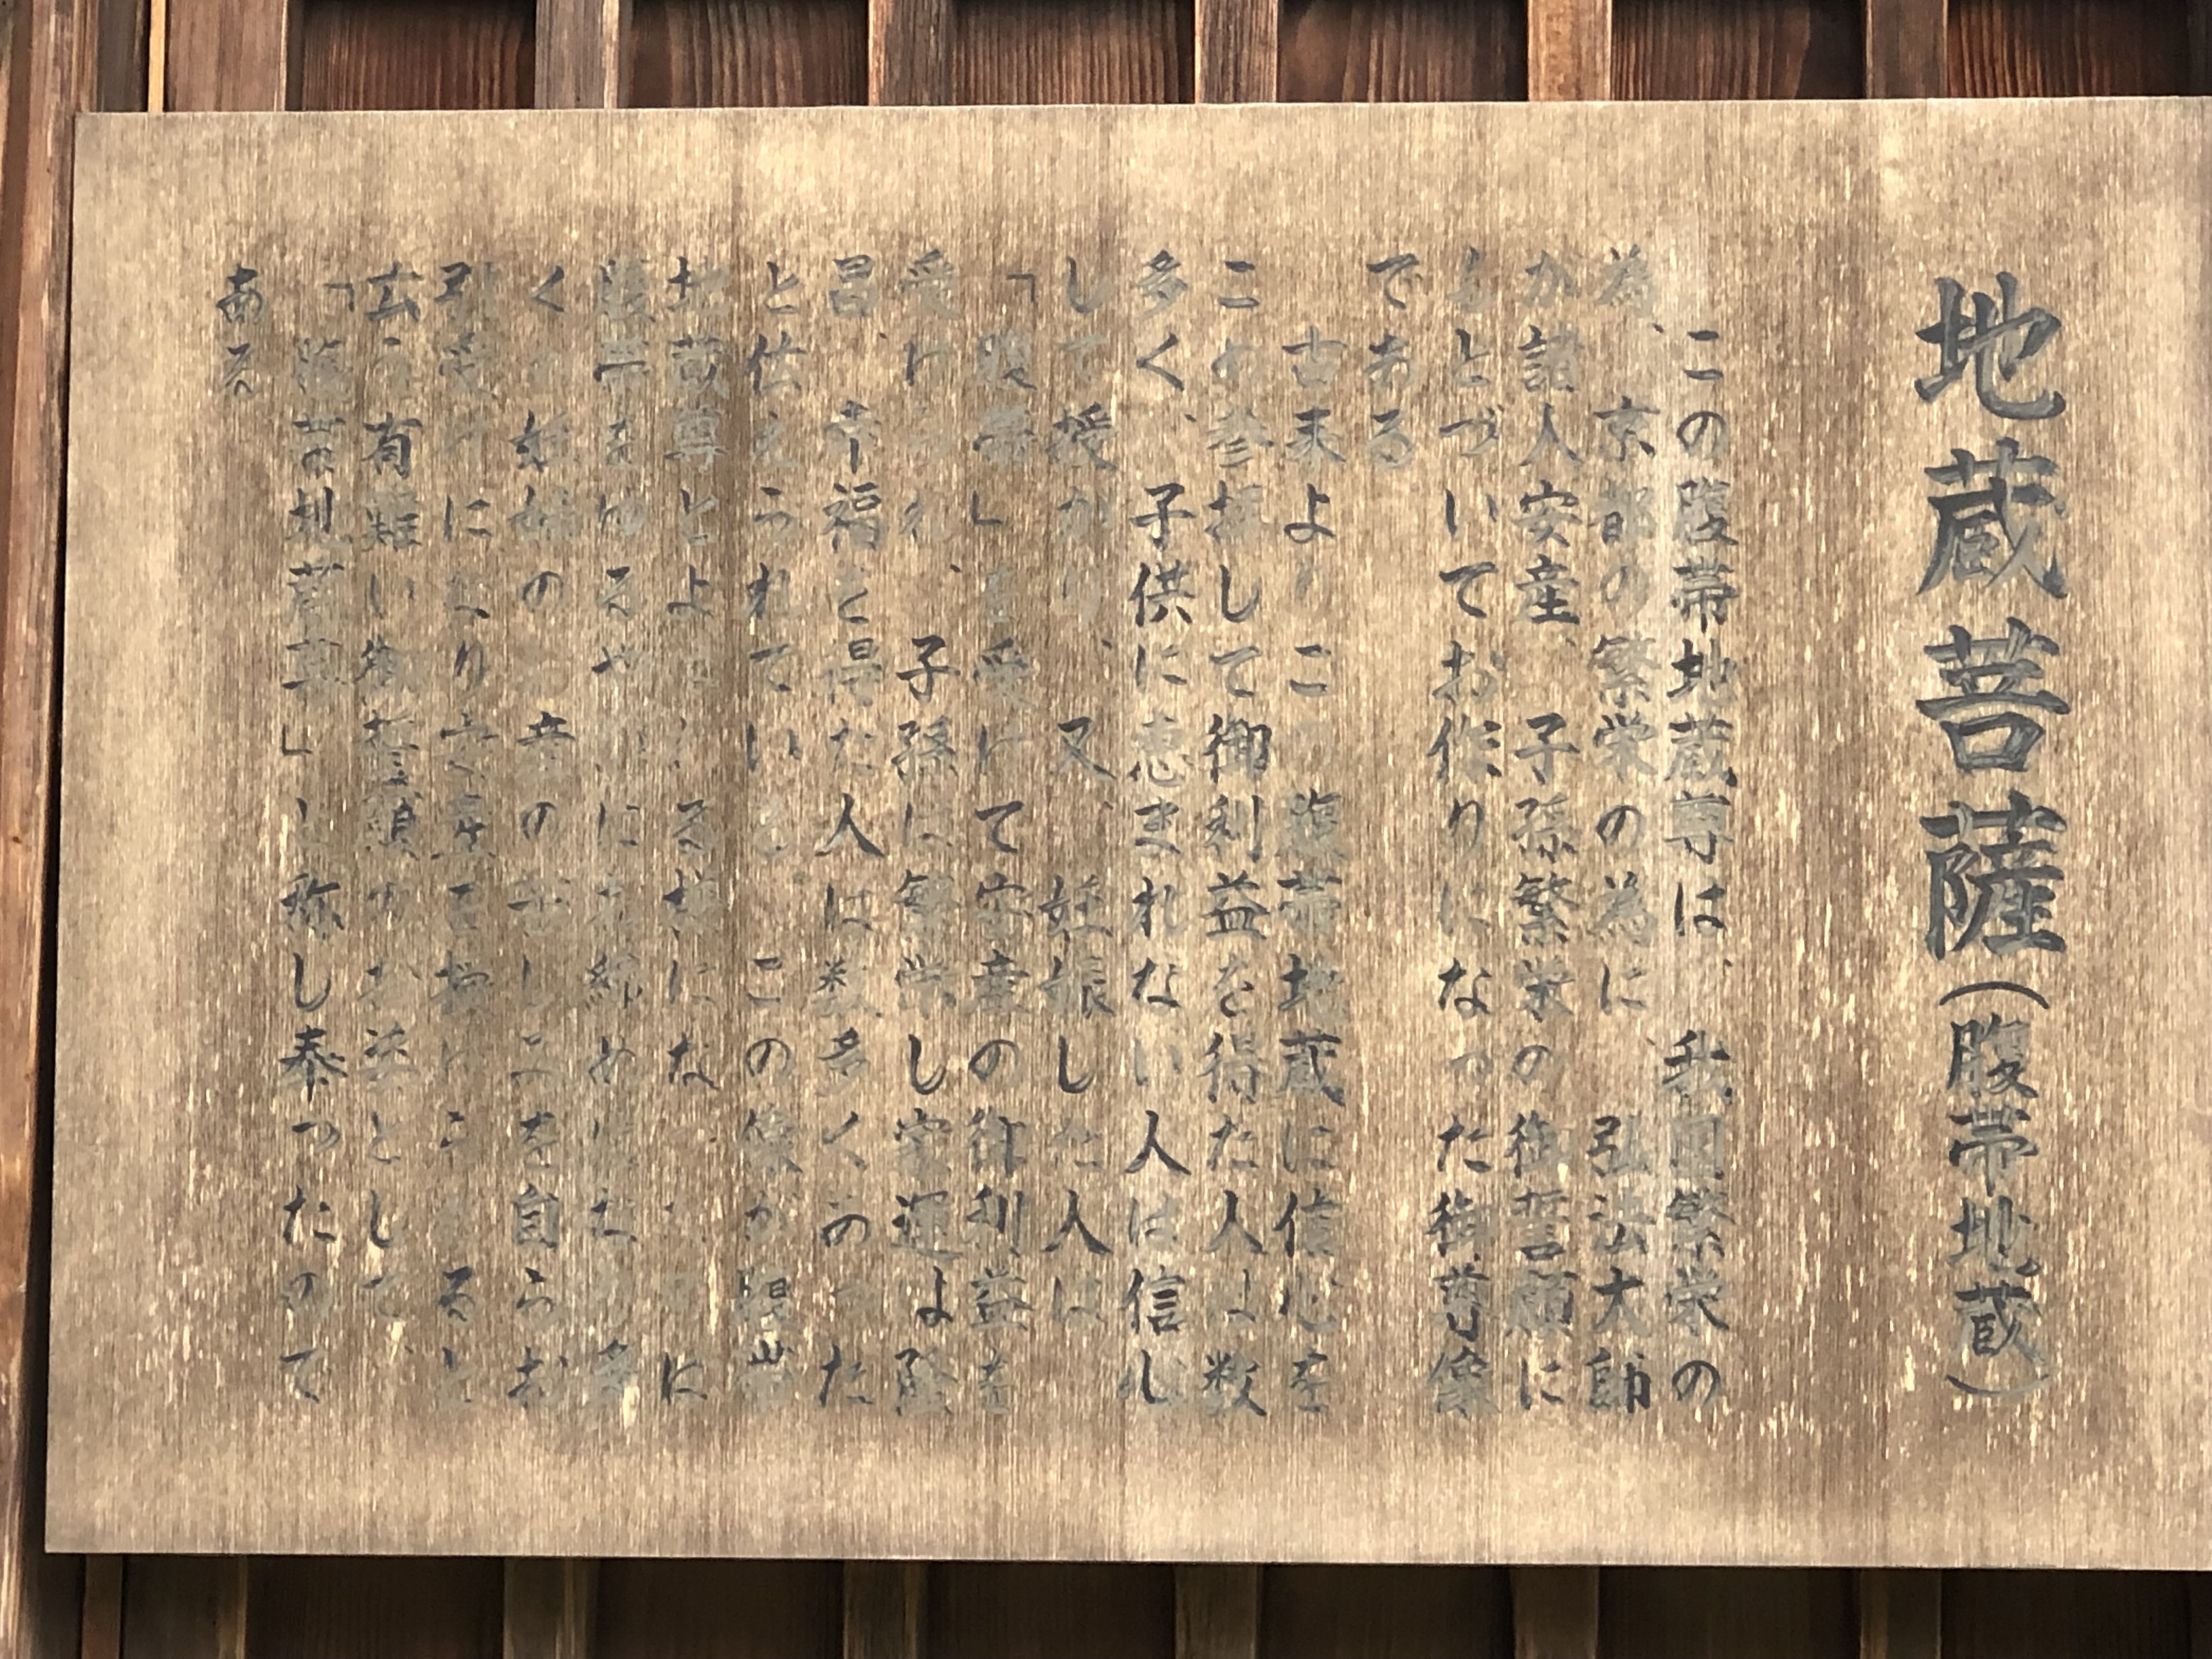 地蔵菩薩(腹帯地蔵)
この腹帯地蔵尊は、我国繁栄の
為、京都の繁栄の為に、弘法大師
が諸人安産、子孫繁栄の御誓願に
もとづいてお作りになった御尊像
である
古来よりこの腹帯地蔵に信心を
この参拝して御利益を得た人は数
多く、子供に恵まれない人は信心
して授かり、又、妊娠した人は
「腹帯」を受けて安産の御利益を
受けられ、子孫は繁栄し家運は隆
昌、幸福を得た人は数多くのった
と伝えられている この像が腹帯
地蔵尊とよばれる様になったのは
腹帯をゆるやかにお締めになり多
くの妊婦のお産の苦しみを自らお
引受けになり安産を授けられると
云う有難い御誓願のお姿として、
「腹帯地蔵尊」と称し奉ったので
ある